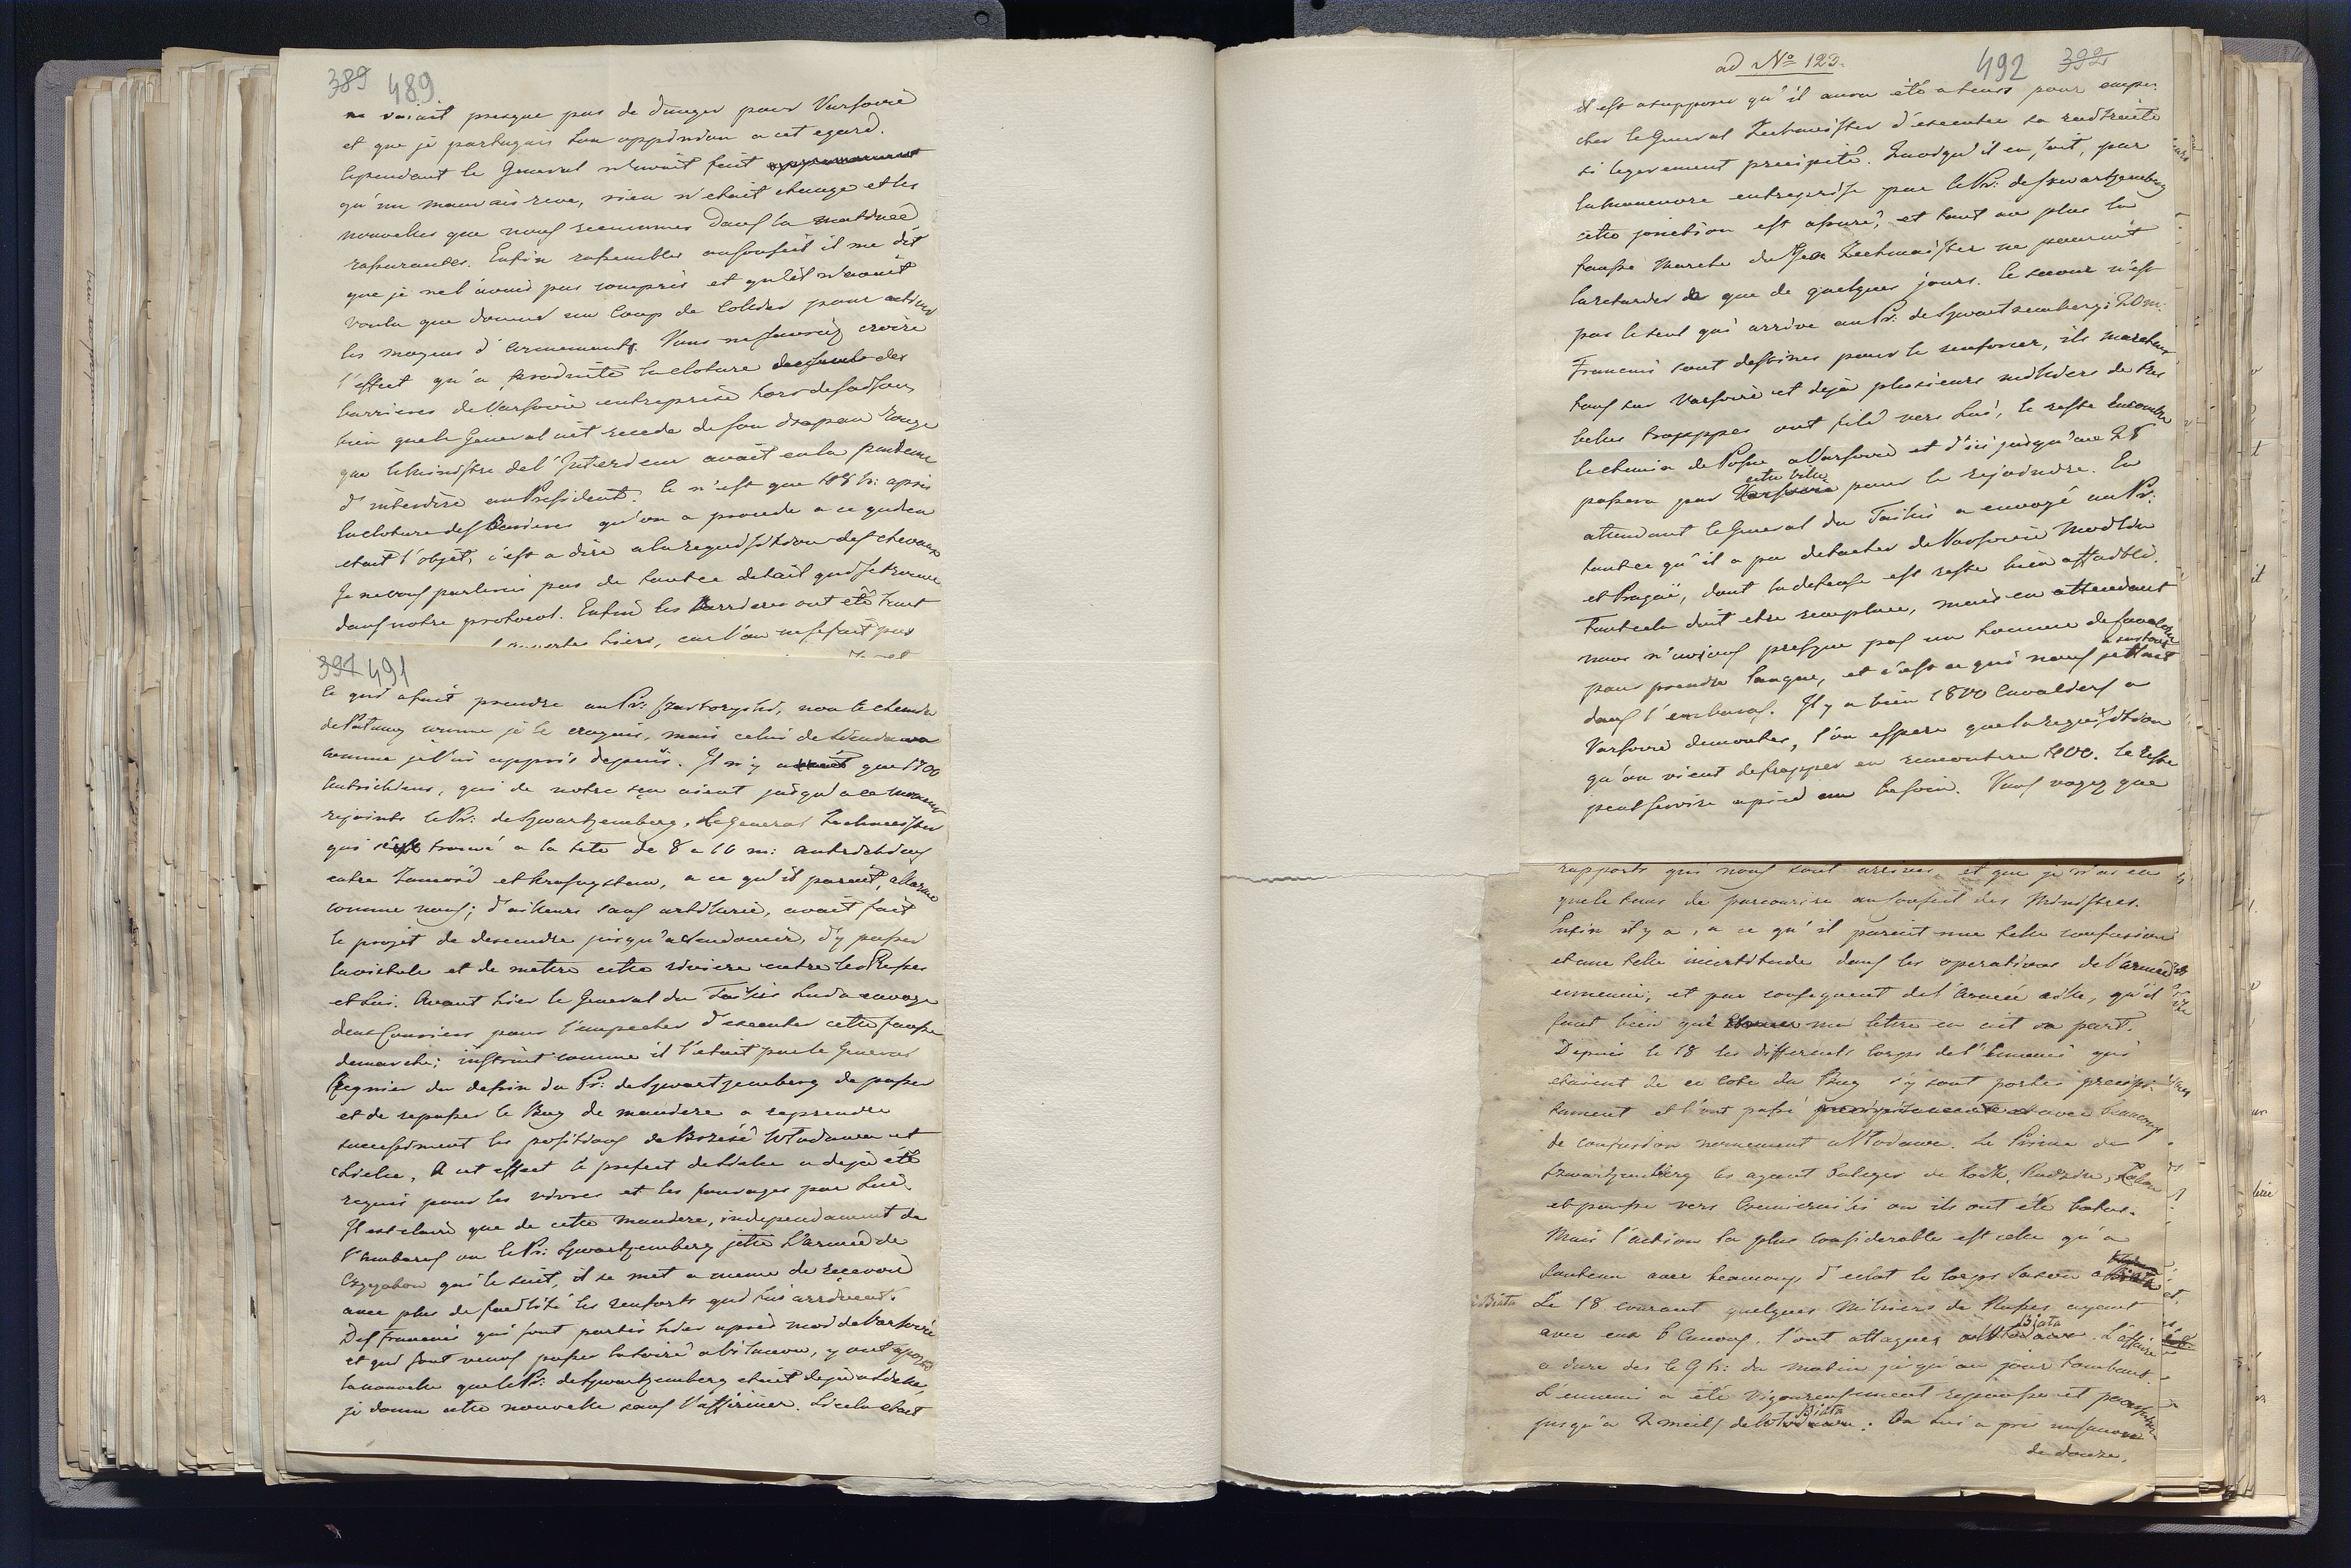 389 489
ne voiait presque pas de danger pour Varsovie
et que je partageais son oppinion a cet egard.
Cependant le General n'avait fait
qu'un mauvais reve, rien n'etait change et les
nouvelles que nous recumes dans la matineé
rassurantes. Enfin rassembles au Conseil il me dit
que je ne l'avais pas compris et qu'il n'avait
voulu que donner un coup de collier pour activer
les moyens d'armements. Vous ne sauriez croire
l'effet qu'a produite la cloture des
barrieres de Varsovie entreprise hors de saison
bien que le General ait recede de son drapeau rouge
que le Ministre de l'Interieur avait eu la
d'interdire au President. Ce n'est que 48 h: apres
la cloture des Barrieres qu'on a procede a ce qui en
etait l'objet, c'est a dire a la requisition des chevaux
Je ne vous parlerai pas de tout ce detail qui se trouve
dans notre protocol. Enfin les Barrieres ont été
ouvertes hiers, car l'on ne se fait pas
391 491
Ce qui a fait prendre au Pr: Czartoryski, non le chemin
de Pulawy comme je le croyais, mais celui de
comme je l'ai appris depuis. Il n'y a que 1700
Autrichiens, qui de notre sçu aient jusqu'a ce moment
rejoints le Pr: de Szwartzemberg. Le General Zechmeister
qui s'est trouvé a la tete de 8 a 10 m: Autrichiens
entre Zamosć et Krasnystaw, a ce qu'il parait, allarmé
comme nous; d'ailleurs sans artillerie, avait fait
le projet de descendre jusqu'a Sandomir, d'y passer
la vistule et de mettre cette riviere entre les Russes
et lui. Avant hier le General du Taillis lui a envoye
deux Couriers pour l'empecher d'executer cette fausse
demarche; instruit comme il l'etait par le General
Regnier du dessin du Pr: de Szwartzemberg de passer
et de repasser le Bug de maniere a reprendre
successivment les positions de Brzesć Wlodawa et
Siedlce. A cet effect le prefect de Siedlce a deja été
requis pour les vivres et les fourages par lui.
Il est claire que de cette maniere, independament de
l'embaras ou le Pr: Szwartzemberg jette l'armeé de
Czyczakow qui le suit, il se met a meme de recevoir
avec plus de facilité les renforts qui lui arrivent.
Des Francais qui sont partis hier apres midi de Varsovie
et qui sont venus passer la soireé a , y ont aporté
la nouvelle que le Pr: de Szwartzemberg etait deja a Siedlce,
je donne cette nouvelle sans l'affirmer. Si cela etait
ad No 123.
492 392
il est a supposer qu'il aura été a tems pour empe-
cher le General Zechmeister d'executer sa reetraite
si legerement precipité. Quoiqu'il en soit, par
la maneuvre entreprise par le Pr: de Szwartzemberg
cette jonction est assuré, et tout au plus la
fausse Marche du Gen Zechmaister ne pourrait
la retarder que de quelques jours. Ce secour n'est
pas le seul qui arrive au Pr: de Szwartzemberg: 20 m:
Francais sont destines pour le renforcer, ils marchent
tous sur Varsovie et deja plusieurs milliers de tres
belles trouppes ont filé vers lui, le reste encombre
le chemin de Posen a Varsovie et d'ici jusqu'au 28
passera par cette ville pour le rejoindre. En
attendant le General du Taillis a envoyé au Pr:
tout ce qu'il a pu detacher de Varsovie Modlin
et Praga, dont la defense est reste bien affaiblie.
Tout cela doit etre remplace, mais en attendant
nous n'avions presque pas un homme de cavalerie
pour prendre langue, et c'est ce qui nous jettait
dans l'embaras. Il y a bien 1800 Cavaliers a
Varsovie demontes, l'on espere que la requisition
qu'on vient de frapper en remontera 1200. Le reste
peut servire a pied au besoin. Vous voyez que
rapports qui nous sont arrives et que je n'ai eu
que le tems de parcourire au Conseil des Ministres.
Enfin il y a, a ce qu'il parait une telle confusion
et une telle incertitude dans les operations de l'armeé
ennemie, et par consequent de l'Armeé alliée, qu'il
faut bien que ma lettre en ait sa part.
Depuis le 18 les differents Corps de l'Ennemi qui
etaient de ce coté du Bug s'y sont portés precipi-
tament et l'ont passé avec beaucoup
de confusion nomement a Wlodawa. Le Prince de
Szwartzemberg les ayant deloges de Kock, Radzin,
et poussé vers ou ils ont été batus.
Mais l'action la plus considerable est celle qu'a
soutenu avec beaucoup d'eclat le Corps Saxon a
a Biała Le 18 courant quelques milliers de Russes ayant
avec eux 6 Canons, l'ont attaques a Biała. L'affaire
a dure des le 9 h: du matin jusqu'au jour tombant.
L'ennemi a été vigoureusement repoussé et
jusqu'a 2 meils de Biała. On lui a pris
de douze.